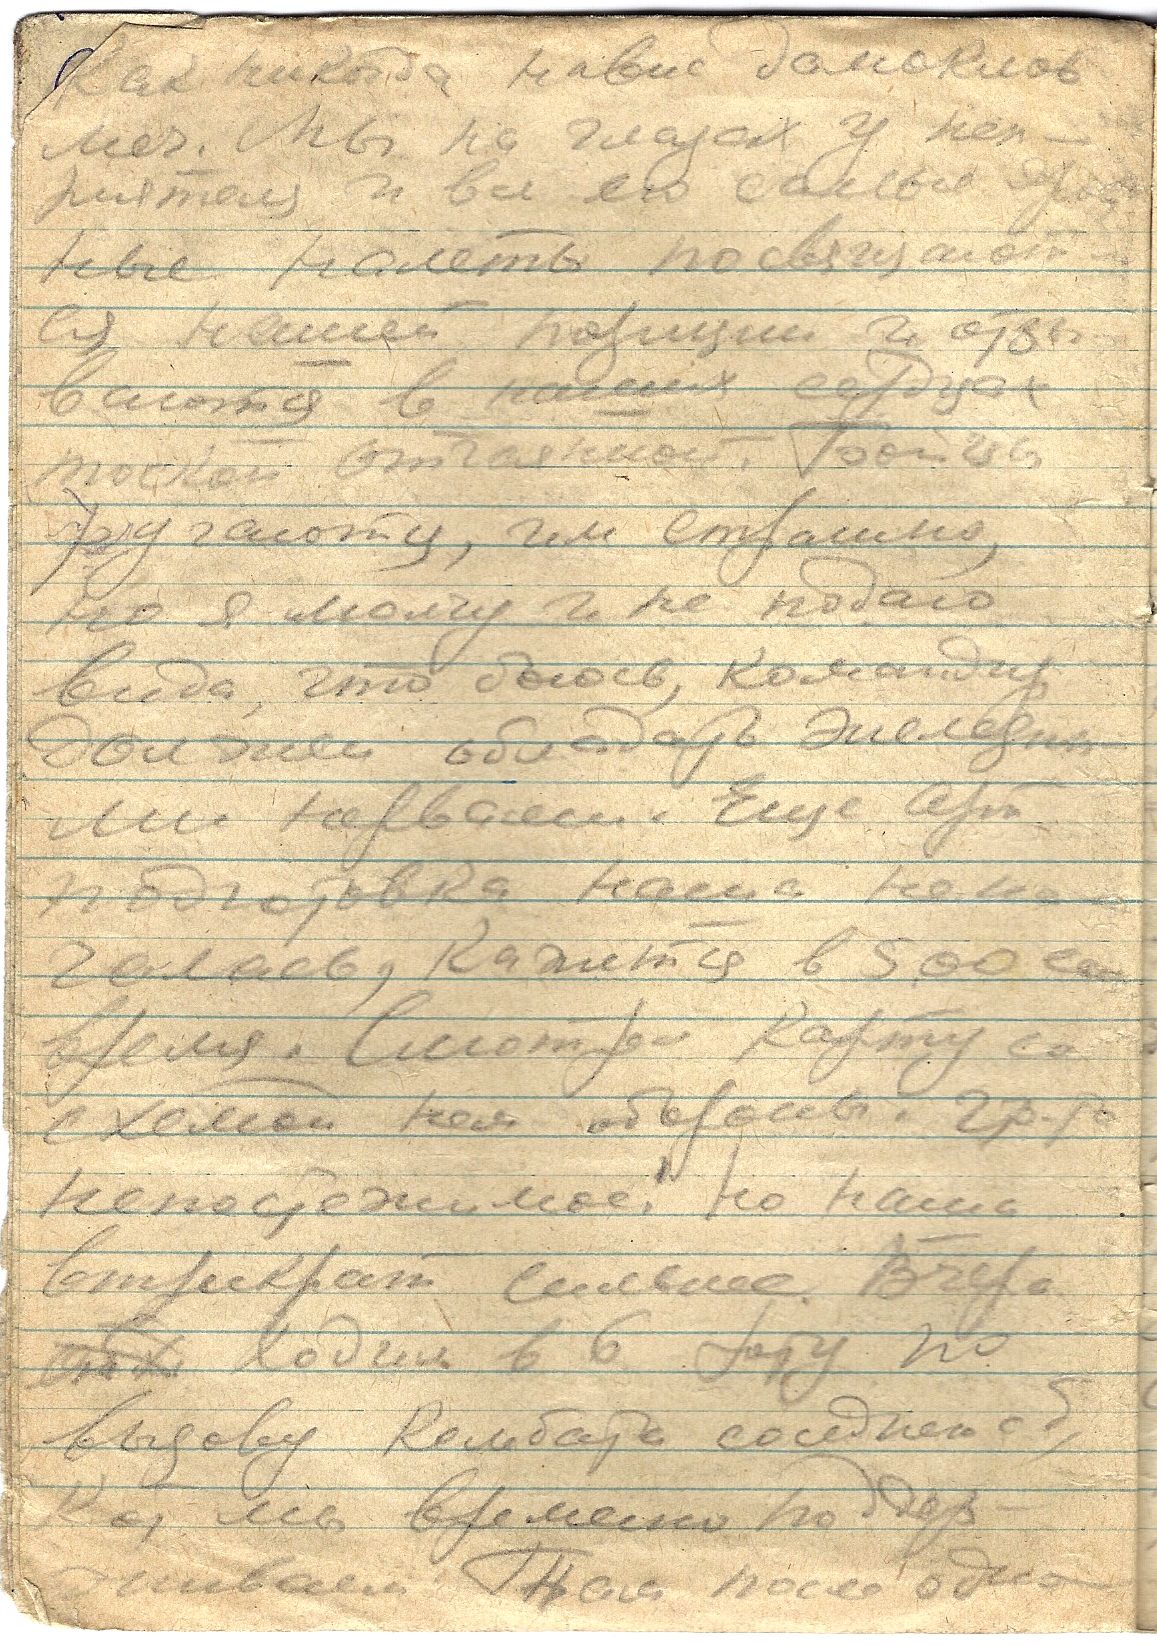 Как никогда навис дамоклов
меч. Мы на глазах у неп-
риятеля и все его самые
ные налеты посвящают-
ся нашей позиции и отзы-
ваются в наших сердцах
тоской отчаянной. Бойцы
ругаются, им страшно,
но я молчу и не подаю
вида, что боюсь, командир
должен обладать железны-
ми нервами. Еще арт
подготовка наша не на-
чалась, кажится в 5.00
время. Смотрел карту со
схемой нем обороны.
непостежимое! но наша
втрикрат сильнее. Вчера
ходил в 6 роту по
вызову комбата соседнего б,
кот мы временно поддер-
живаем. Там после одно-